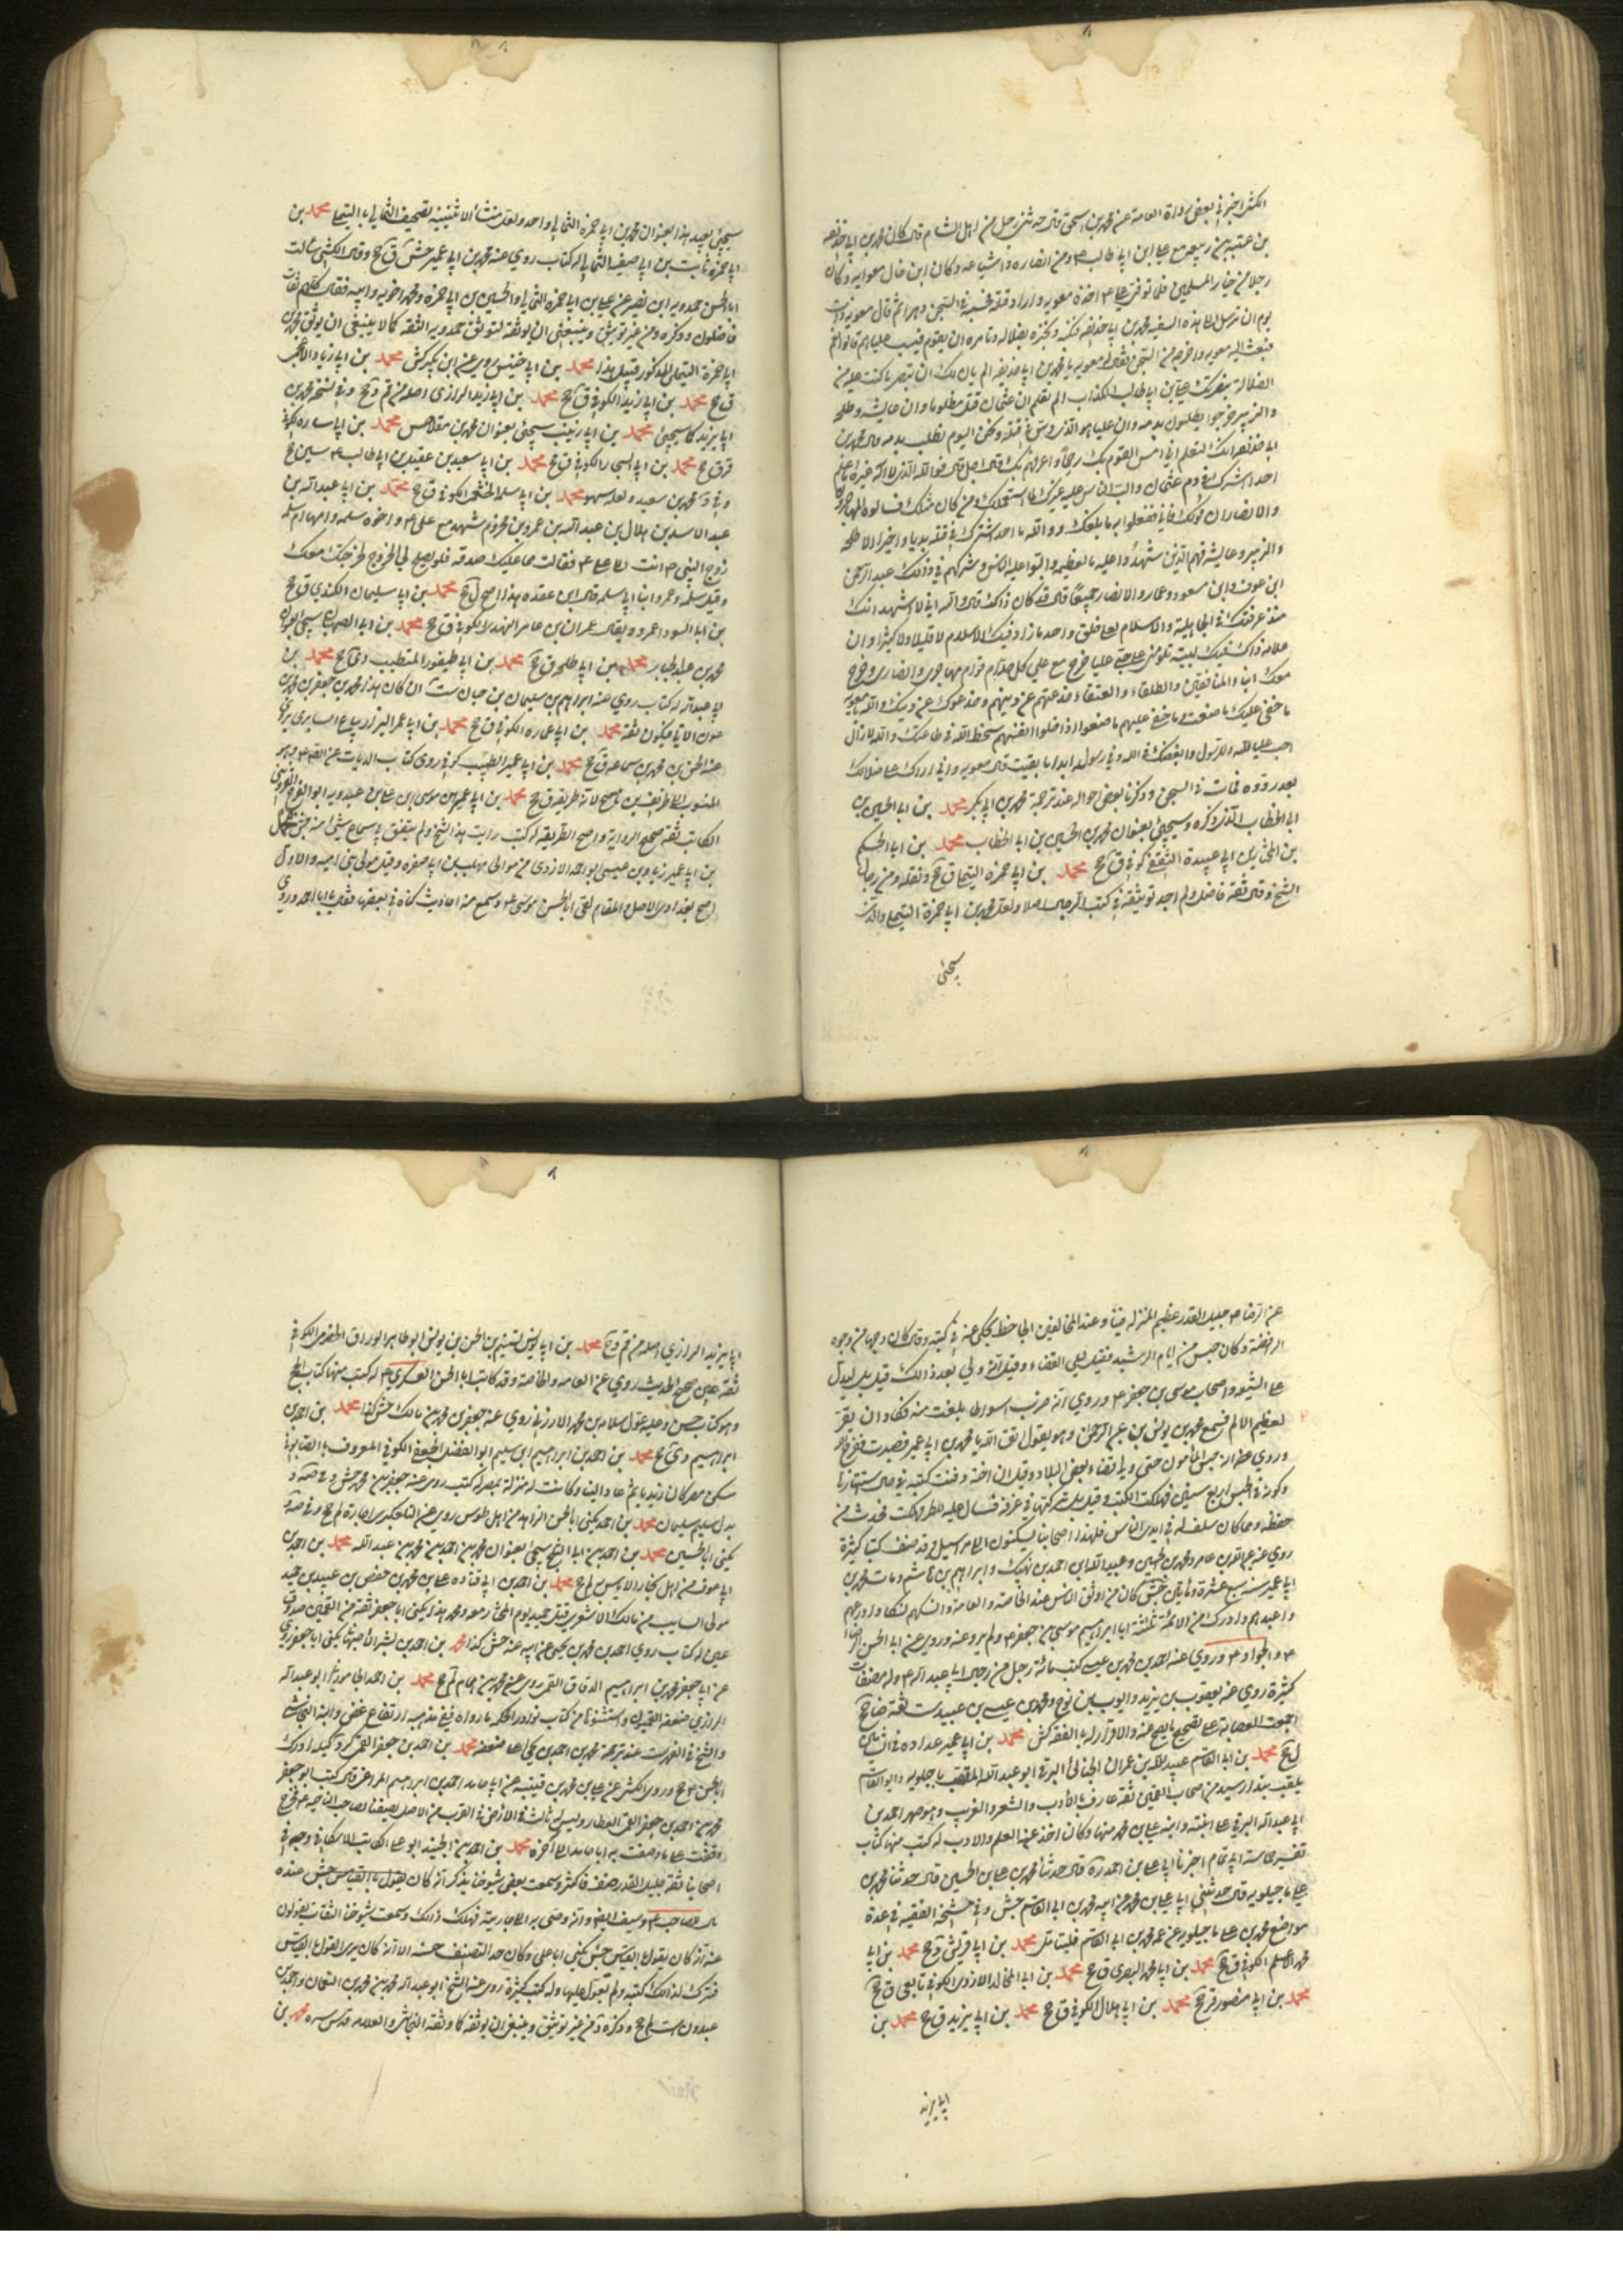 اخبرني بعض رواة العامة عن محمد بن اسحق قال حدثني رجل من اهل الشام قال كان محمد بن ابي حذيفة
بن عتبة بن ربيعة مع علي ابن ابي طالب ومن انصاره واشياعه وكان ابن خال معوية وكان
رجلا من خيار المسلمين فلما توفي علي اخذه معوية واراد قتله فحبسه في السجن دهرا ثم قال معوية ذات
يوم ان نرسل الى هذا السفيه محمد بن ابي حذيفة فنبكته ونخبره بضلاله ونامره ان يقوم فيسب عليا قالوا نعم
فبعث اليه معوية واخرجه من السجن فقال له معوية يا محمد بن ابي حذيفة الم يان لك ان تبصر ما كنت عليه من
الضلالة بنصرتك علي بن ابي طالب الكذاب الم تعلم ان عثمان قتل مظلوما وان عايشة وطلحة
والزبير خرجوا يطلبون بدمه وان عليا هو الذي دس في قتله ونحن اليوم نطلب بدمه قال محمد بن
ابي حذيفة انك لتعلم اني امس القوم بك رحما واعرفهم بك قال اجل قال فوالله الذي لا اله غيره ما اعلم
احدا شرك في دم عثمان والب الناس عليه غيرك لما استعملك ومن كان مثلك فساله المهاجرون
والانصار ان يعزلك فابى ففعلوا به ما بلغك ووالله ما احد اشترك في قتله بديا واخيرا الا طلحة
والزبير وعايشة فهم الذين شهدوا عليه بالعظيمة والبوا عليه الناس وشركهم في ذلك عبد الرحمن
ابن عوف وابن مسعود وعمار والانصار جميعا قال قد كان ذاك قال والله اني لاشهد انك
منذ عرفتك في الجاهلية والاسلام لعلى خلق واحد ما زاد فيك الاسلام لا قليلا ولا كثيرا وان
علامة ذلك فيك لبينة تلومني على حبي عليا خرج مع علي كل صوام قوام مهاجري وانصاري وخرج
معك ابناء المنافقين والطلقاء والعتقاء خدعتهم عن دينهم وخدعوك عن دنياك والله يا معوية
ما خفي عليك ما صنعت وما خفي عليهم ما صنعوا اذ احلوا انفسهم سخط الله في طاعتك والله لا ازال
احب عليا لله ولرسوله وابغضك في الله وفي رسوله ابدا ما بقيت قال معوية واني اراك على ضلالك
بعد ردوه فمات في السجن وذكرنا بعض احواله عند ترجمة محمد بن ابي بكر محمد بن ابي الحسين بن
ابي الخطاب الذي ذكره وسيجيئ بعنوان محمد بن الحسين بن ابي الخطاب محمد بن ابي الحكم
بن المختار بن ابي عبيدة الثقفي كوفي ق جخ محمد بن ابي حمزة التيملي ق جخ ونقله من رجال
الشيخ وقال ثقة فاضل ولم اجد توثيقه في كتب الرجال اصلا ولعل محمد بن ابي حمزة التيملي والذي
سيجئ
سيجيئ بعيد هذا بعنوان محمد بن ابي حمزة الثمالي واحد ولعل منشأ الاثنينية تصحيف الثمالي بالتيملي محمد بن
ابي حمزة ثابت بن ابي صفية الثمالي له كتاب روى عنه محمد بن ابي عمير جش ق جخ وقال الكشي سألت
ابا الحسن حمدويه ابن نصير عن علي بن ابي حمزة الثمالي والحسين بن ابي حمزة ومحمد اخويه وابيه فقال كلهم ثقات
فاضلون وذكره د من غير توثيق وينبغي ان يوثقه لتوثيق حمدويه الثقة كما لا ينبغي ان يوثق محمد بن
ابي حمزة التيملي المذكور قبيل هذا محمد بن ابي خنيس روى عن ابن بكير كش محمد بن ابي زياد الاعجمي
ق جخ محمد بن ابي زيد الكوفي ق جخ محمد بن ابي زيد الرازي اصله من قم د جخ وفي نسخة محمد بن
ابي يزيد كما سيجيئ محمد بن ابي زينب سيجيئ بعنوان محمد بن مقلاص محمد بن ابي سارة كوفي
قر ق جخ محمد بن ابي السجار الكوفي ق جخ محمد بن ابي سعيد بن عقيل بن ابي طالب سين جخ
وفي د محمد بن سعيد ولعله سهو محمد بن ابي سلمة الخثعمي الكوفي ق جخ محمد بن ابي عبد الله بن
عبد الاسد بن هلال بن عبد الله بن عمرو بن مخزوم شهد مع علي واخوه سلمة وامهما ام سلمة
زوج النبي انت الى علي فقالت هما عليك صدقة فلو يصلح لي الخروج لخرجت معك
وقيل سلمة وعمر وابنا ابي سلمة قال ابن عقدة هذا اصح ل جخ محمد بن ابي سليمان الكندي ق جخ
محمد بن عبد الجبار محمد بن ابي طلحة ق جخ محمد بن ابي طيفور المتطيب دي جخ محمد بن
ابي عبد الله له كتاب روى عنه ابراهيم بن سليمان بن حيان ست ان كان هذا محمد بن جعفر بن محمد بن
عون الاتي فيكون ثقة محمد بن ابي عمارة الكوفي ق جخ محمد بن ابي عمر البزاز بياع السابري يروي
عنه الحسن بن محمد بن سماعة ق جخ محمد بن ابي عمير الطبيب كوفي روى كتاب الديات عن الصادق
الكاتب ثقة صحيح الرواية واضح الطريقة له كتب رايت هذا الشيخ ولم يتفق لي سماع شيئ منه جش محمد
بن ابي عمير زياد بن عيسى ابو احمد الازدي من موالي مهلب بن ابي صفرة وقيل مولى بني امية والاول
اصح بغدادي الاصل والمقام لقي ابا الحسن موسى وسمع منه احاديث كناه في بعضها فقال يا ابا احمد وروى
عن الرضا جليل القدر عظيم المنزلة فينا وعند المخالفين الجاحظ يحكي عنه في كتبه وقال كان وجها من وجوه
الرافضة وكان حبس في ايام الرشيد فقيل ليلي القضاء وقيل انه ولي بعد ذلك قيل بل ليدل
على الشيعة واصحاب موسى بن جعفر وروي انه ضرب اسواطا بلغت منه فكاد ان يقر
لعظيم الالم فسمع محمد بن يونس بن عبد الرحمن وهو يقول اتق الله يا محمد بن ابي عمير فصبرت ففرج الله
وروي انه حبسه المأمون حتى ولاه قضاء بعض البلاد وقيل ان اخته دفنت كتبه في حال استتارها
وكونه في الحبس اربع سنين فهلكت الكتب وقيل بل تركتها في غرفة فسال عليها المطر فهلكت فحدث من
حفظه ومما كان سلف له في ايدي الناس فلهذا اصحابنا يسكنون الى مراسيله قد صنف كتبا كثيرة
روى عنه عبد الله بن عامر ومحمد بن الحسين وعبيد الله بن احمد بن نهيك وابراهيم بن هاشم ومات محمد بن
ابي عمير سنة سبع عشرة ومأتين جش كان من اوثق الناس عند الخاصة والعامة وانسكهم نسكا واورعهم
واعبدهم وادرك من الائمة ثلثة ابا ابراهيم موسى بن جعفر ولم يرو عنه وروى عن ابي الحسن الرضا
والجواد وروى عنه احمد بن محمد بن عيسى كتب مائة رجل من رجال ابي عبد الله وله مصنفات
كثيرة روى عنه يعقوب بن يزيد وايوب بن نوح ومحمد بن عيسى بن عبيد ست ثقة ضا جخ
اجمعت العصابة على تصحيح ما يصح عنه والاقرار له بالفقه كش محمد بن ابي عمير
ل جخ محمد بن ابي القاسم عبيد الله بن عمران الجنابي البرقي ابو عبد الله الملقب ماجيلويه وابو القاسم
يلقب بندار سيد من اصحابنا القميين ثقة عارف بالادب والشعر والغريب وهو صهر احمد بن
ابي عبد الله البرقي على ابنته وابنه علي بن محمد منها وكان اخذ عنه العلم والادب له كتب منها كتاب
تفسير حماسة ابي تمام اخبرنا ابي علي بن احمد ره قال حدثنا محمد بن علي بن الحسين قال حدثنا محمد بن
علي ماجيلويه قال حدثني ابي علي بن محمد عن ابيه محمد بن ابي القاسم جش وفي مشيخة الفقيه في عدة
مواضع محمد بن علي ماجيلويه عن عمه محمد بن ابي القاسم فليتامل محمد بن ابي قريش د جخ محمد بن ابي
محمد الاسلم الكوفي ق جخ محمد بن ابي محمد البصري ق جخ محمد بن ابي المخالد الازدي الكوفي تابعي ق جخ
محمد بن ابي منصور قر جخ محمد بن ابي هلال الكوفي ق جخ محمد بن ابي يزيد ق جخ محمد بن
ابي يزيد
ابي يزيد الرازي اصله من قم د جخ محمد بن ابي يونس تسنيم بن الحسن بن يونس ابو طاهر الوراق الحضرمي الكوفي
ثقة عين صحيح الحديث روى عن العامة والخاصة وقد كاتب ابا الحسن العسكري له كتب منها كتاب الحج
ابراهيم دي جخ محمد بن احمد بن ابراهيم ابن سليم ابو الفضل الجعفي الكوفي المعروف بالصابوني
سكن مصر كان زيديا ثم عاد الينا وكانت له منزلة بمصر له كتب روى عنه جعفر بن محمد جش
بدل سليم سليمان محمد بن احمد يكنى ابا الحسن الزاهد من اهل طوس روى عنه التلعكبري اجازة لم جخ
يكنى ابا الحسين محمد بن احمد بن ابي الثلج سيجئ بعنوان محمد بن احمد بن محمد بن عبد الله محمد بن احمد بن
ابي عوف من اهل بخارا لا باس به لم جخ محمد بن احمد بن ابي قتادة علي بن محمد بن حفص بن عبيد بن حميد
مولى السايب بن مالك الاشعري يكنى ابا جعفر ثقة من القميين صدوق
عين له كتاب روى احمد بن محمد بن يحيى عن ابيه عنه جش
عن ابي جعفر محمد بن ابراهيم الدقاق القمي روى عنه محمد بن همام لم جخ محمد بن احمد الجاموراني ابو عبد الله
الرازي ضعفه القميون واستثنوا من كتاب نوادر الحكمة ما رواه وفي مذهبه ارتفاع غض وابنه النجاشي
والشيخ في الفهرست عند ترجمة محمد بن احمد بن يحيى على ضعفه محمد بن احمد بن جعفر القمي كر وكيله ادرك
ابا الحسن جخ وروى الكشي عن علي بن محمد بن قتيبة عن ابي حامد احمد بن ابراهيم المراغي قال كتب ابو جعفر
محمد بن احمد بن جعفر القمي العطار وليس له ثالث في الارض في القرب من الاصل يصفنا لصاحب الناحية فخرج
وقفت على ما وصفت به ابا حامد الى اخره محمد بن احمد بن الجنيد ابو علي الكاتب الاسكافي وجه في
اصحابنا ثقة جليل القدر صنف فاكثر وسمعت بعض شيوخنا يذكر انه كان يقول بالقياس جش عنده
مال للصاحب وسيف ايضا وانه وصى به الى جاريته فهلك ذلك وسمعت شيوخنا الثقات يقولون
عنه انه كان يقول بالقياس جش يكنى ابا علي وكان جيد التصنيف حسنه الا انه كان يرى القول بالقياس
فترك لذلك كتبه ولم يعول عليها وله كتب كثيرة روى عنه الشيخ ابو عبد الله محمد بن محمد بن النعمان واحمد بن
عبدون ست لم جخ وذكره د من غير توثيق وينبغي ان يوثقه كما وثقه النجاشي والعلامة قدس سره محمد بن